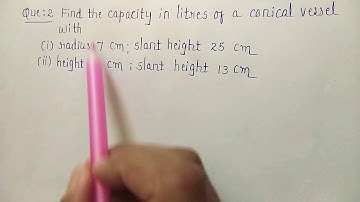 Que:2 Find the capacity in litres of a conical vessel
with
(i) radius 7 cm, slant height 25 cm
(ii) height cm ; slant height 13 cm